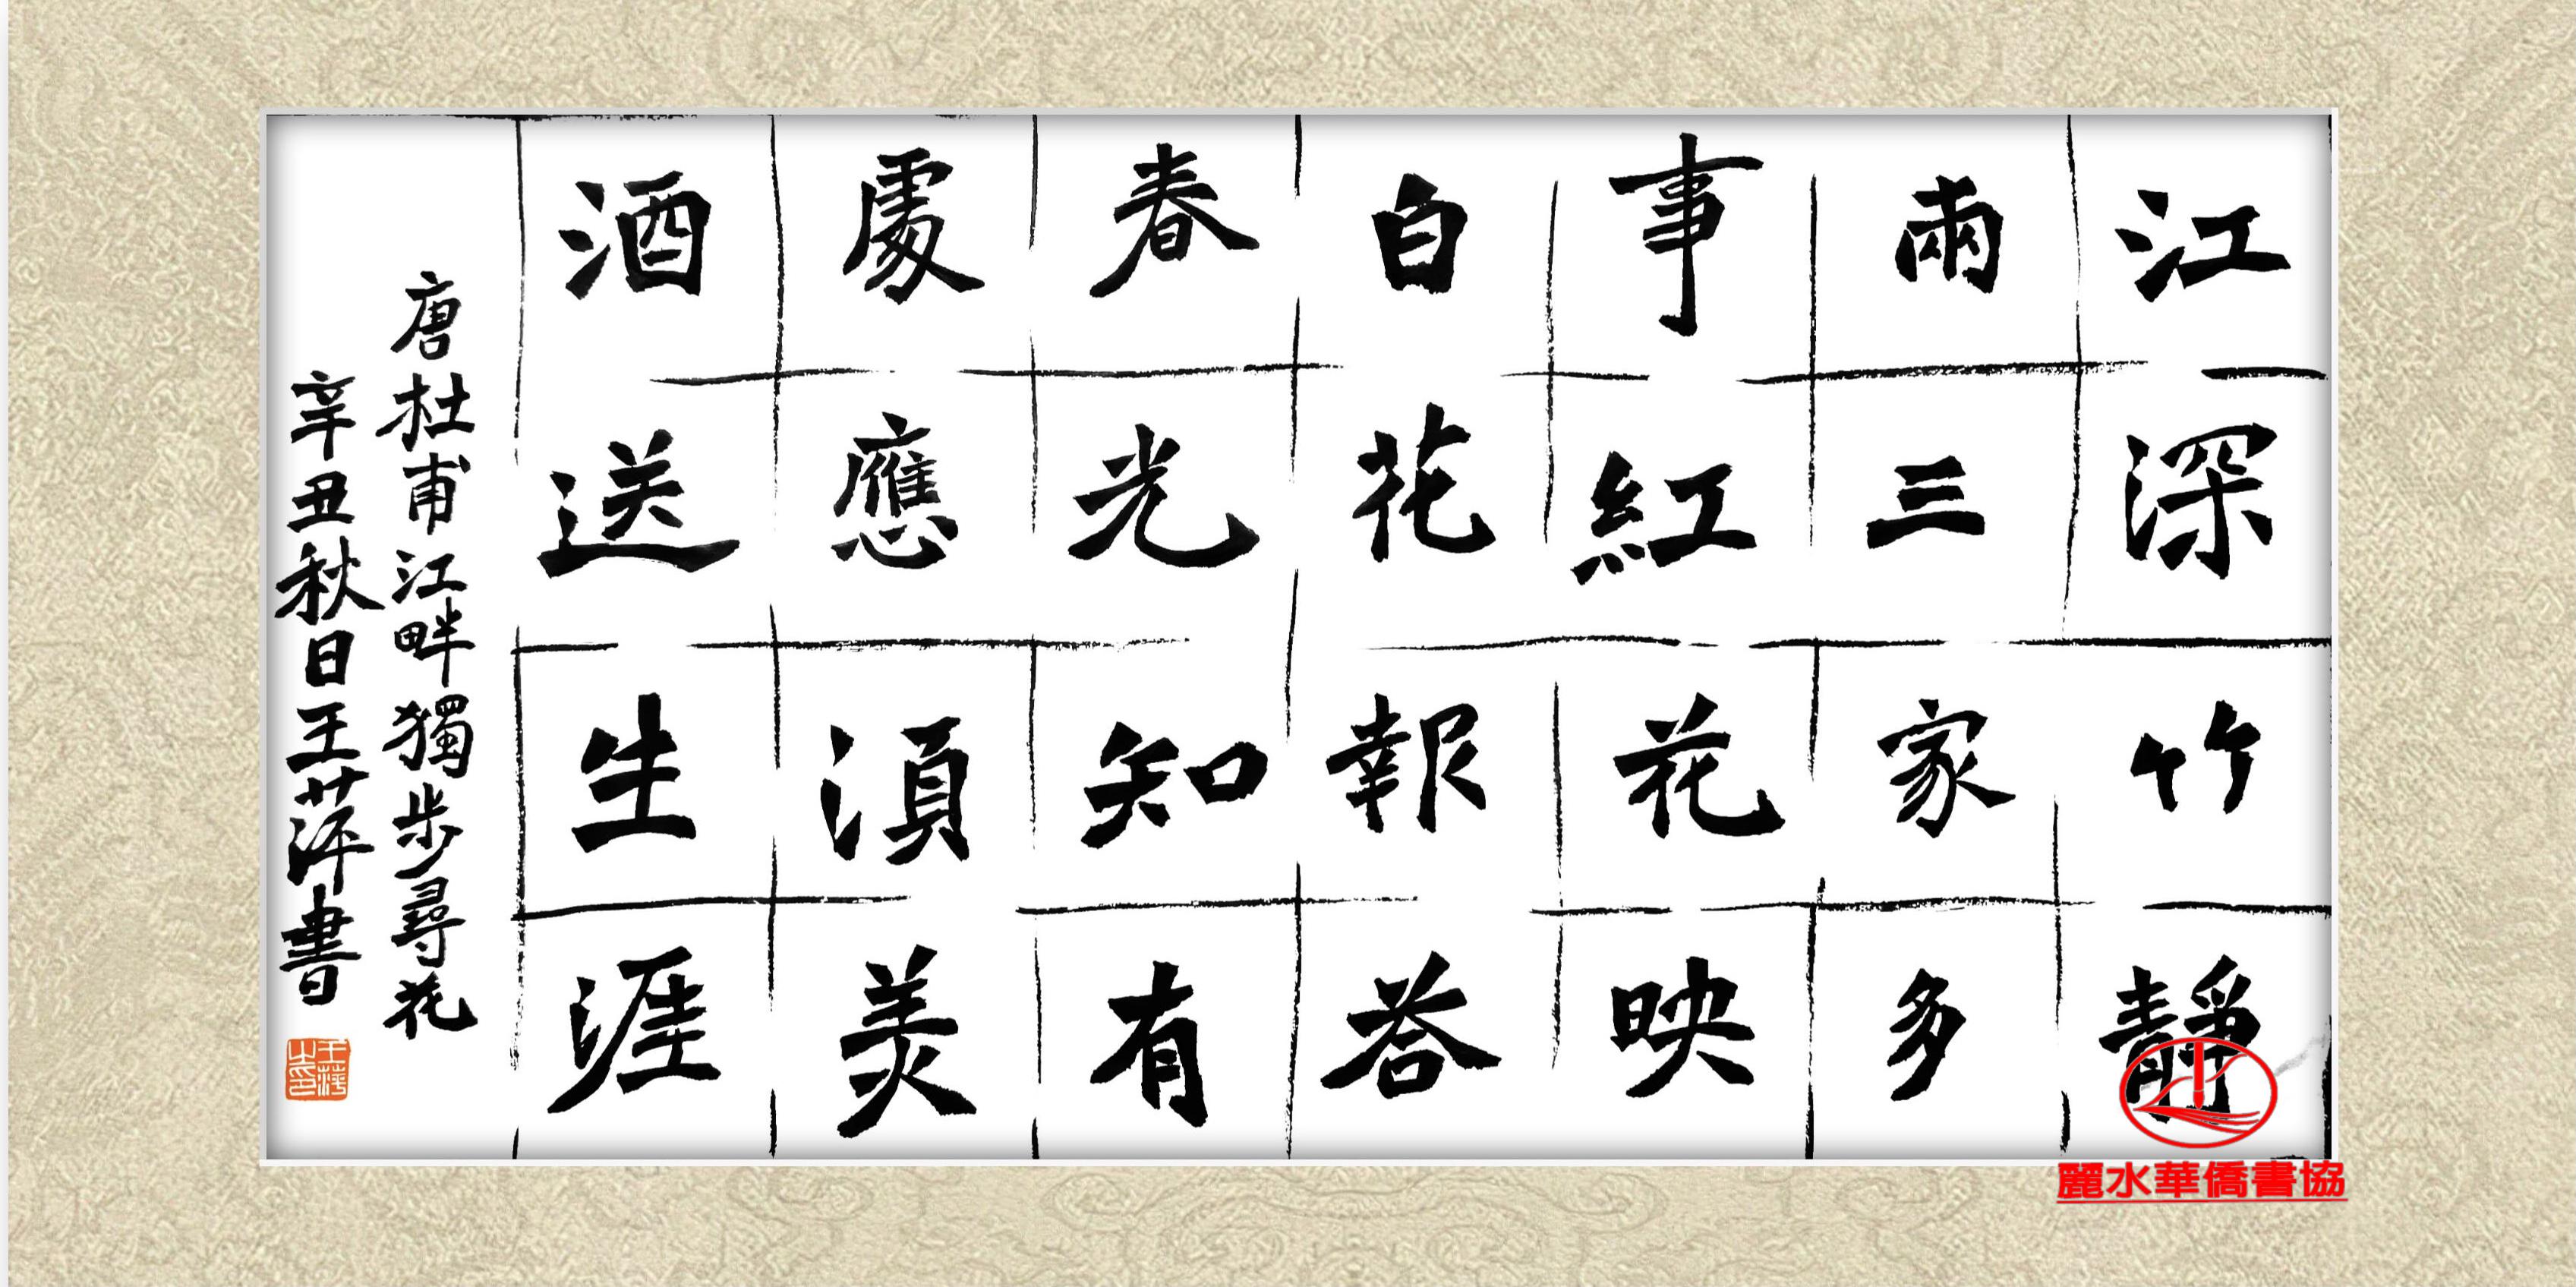 江深竹靜
兩三家多
事紅花映
白花報荅
春光知有
處應湏羙
酒送生涯
唐杜甫江畔獨步尋花
辛丑秋日王萍書
王萍之印
麗水華僑書協